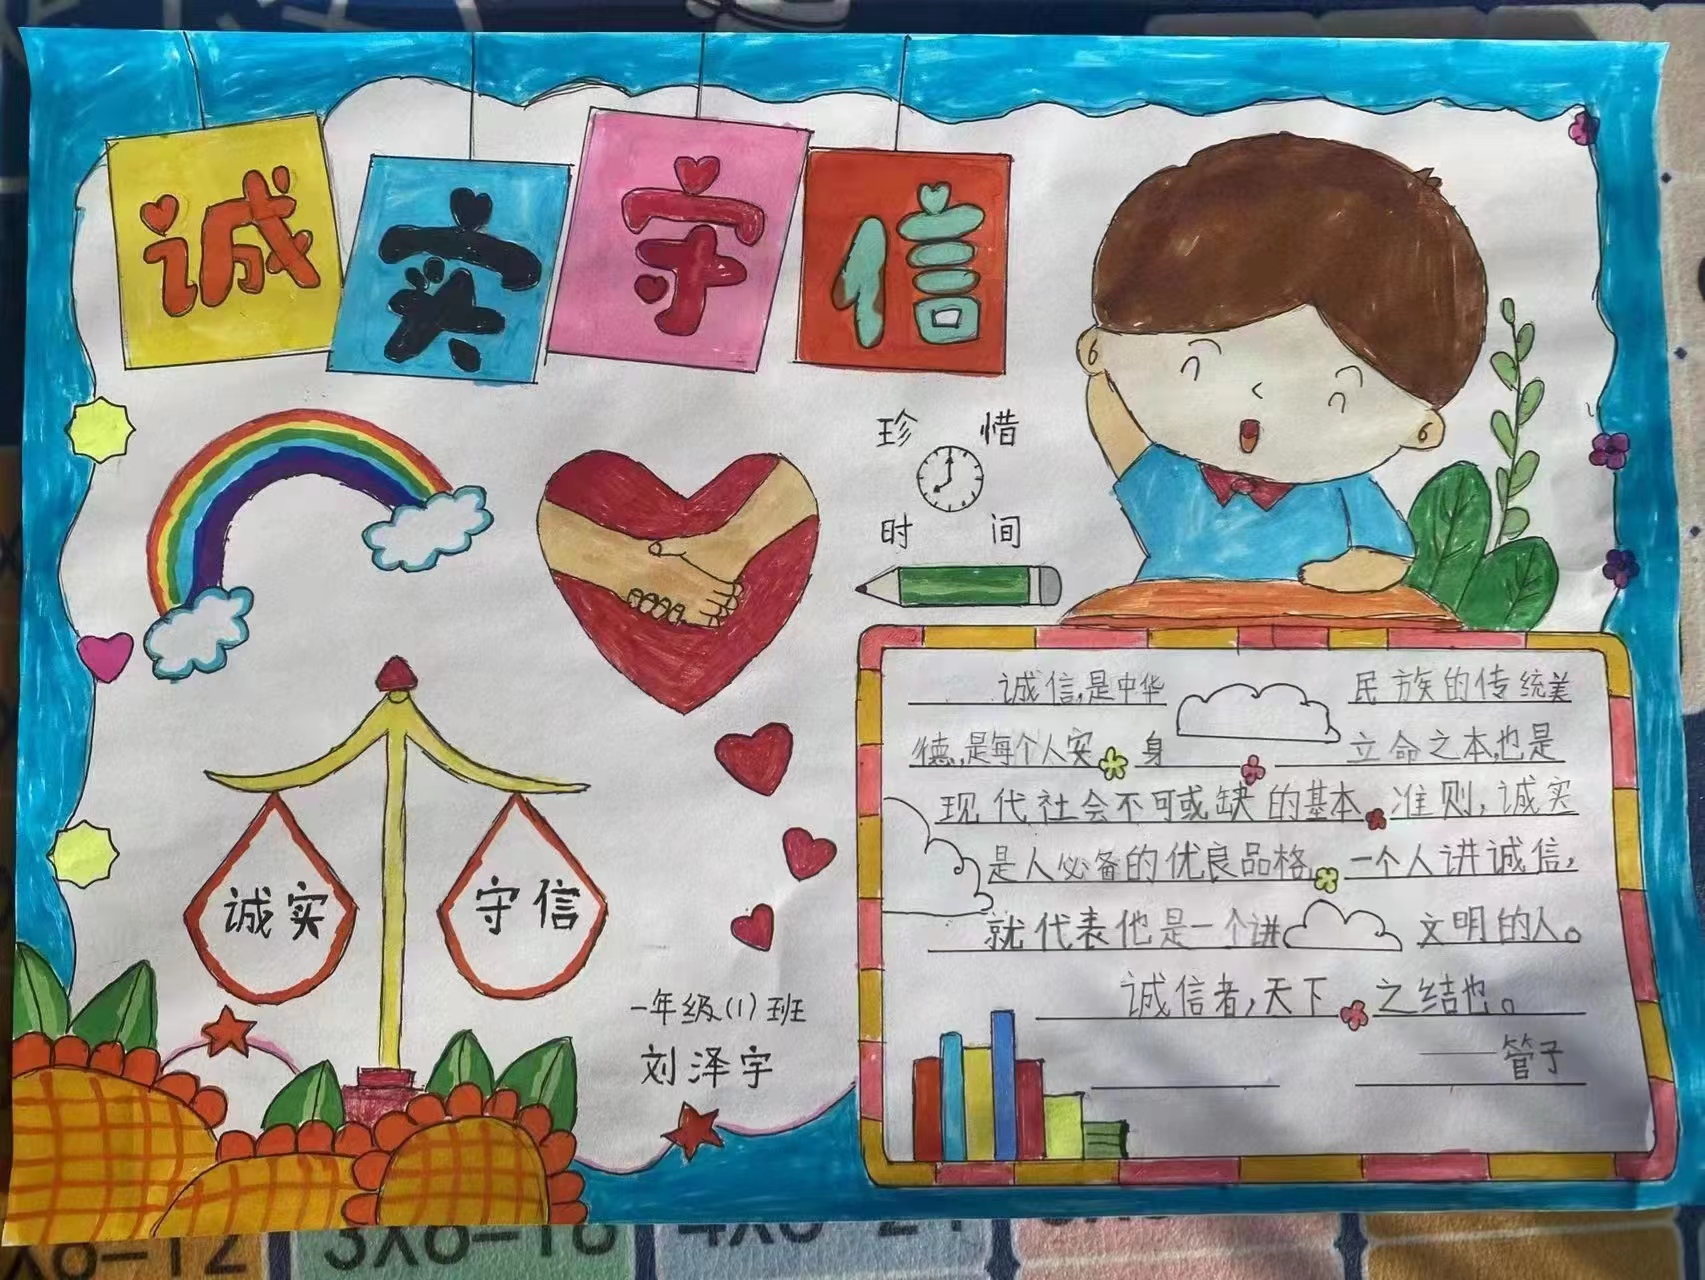 诚实守信
珍惜
时间
诚信,是中华民族的传统美
德,是每个人安身立命之本,也是
现代社会不可或缺的基本准则,诚实
是人必备的优良品格,一个人讲诚信,
就代表他是一个讲文明的人。
诚信者,天下之结也。
——管子
诚实
守信
一年级(1)班
刘泽宇
3X6=18